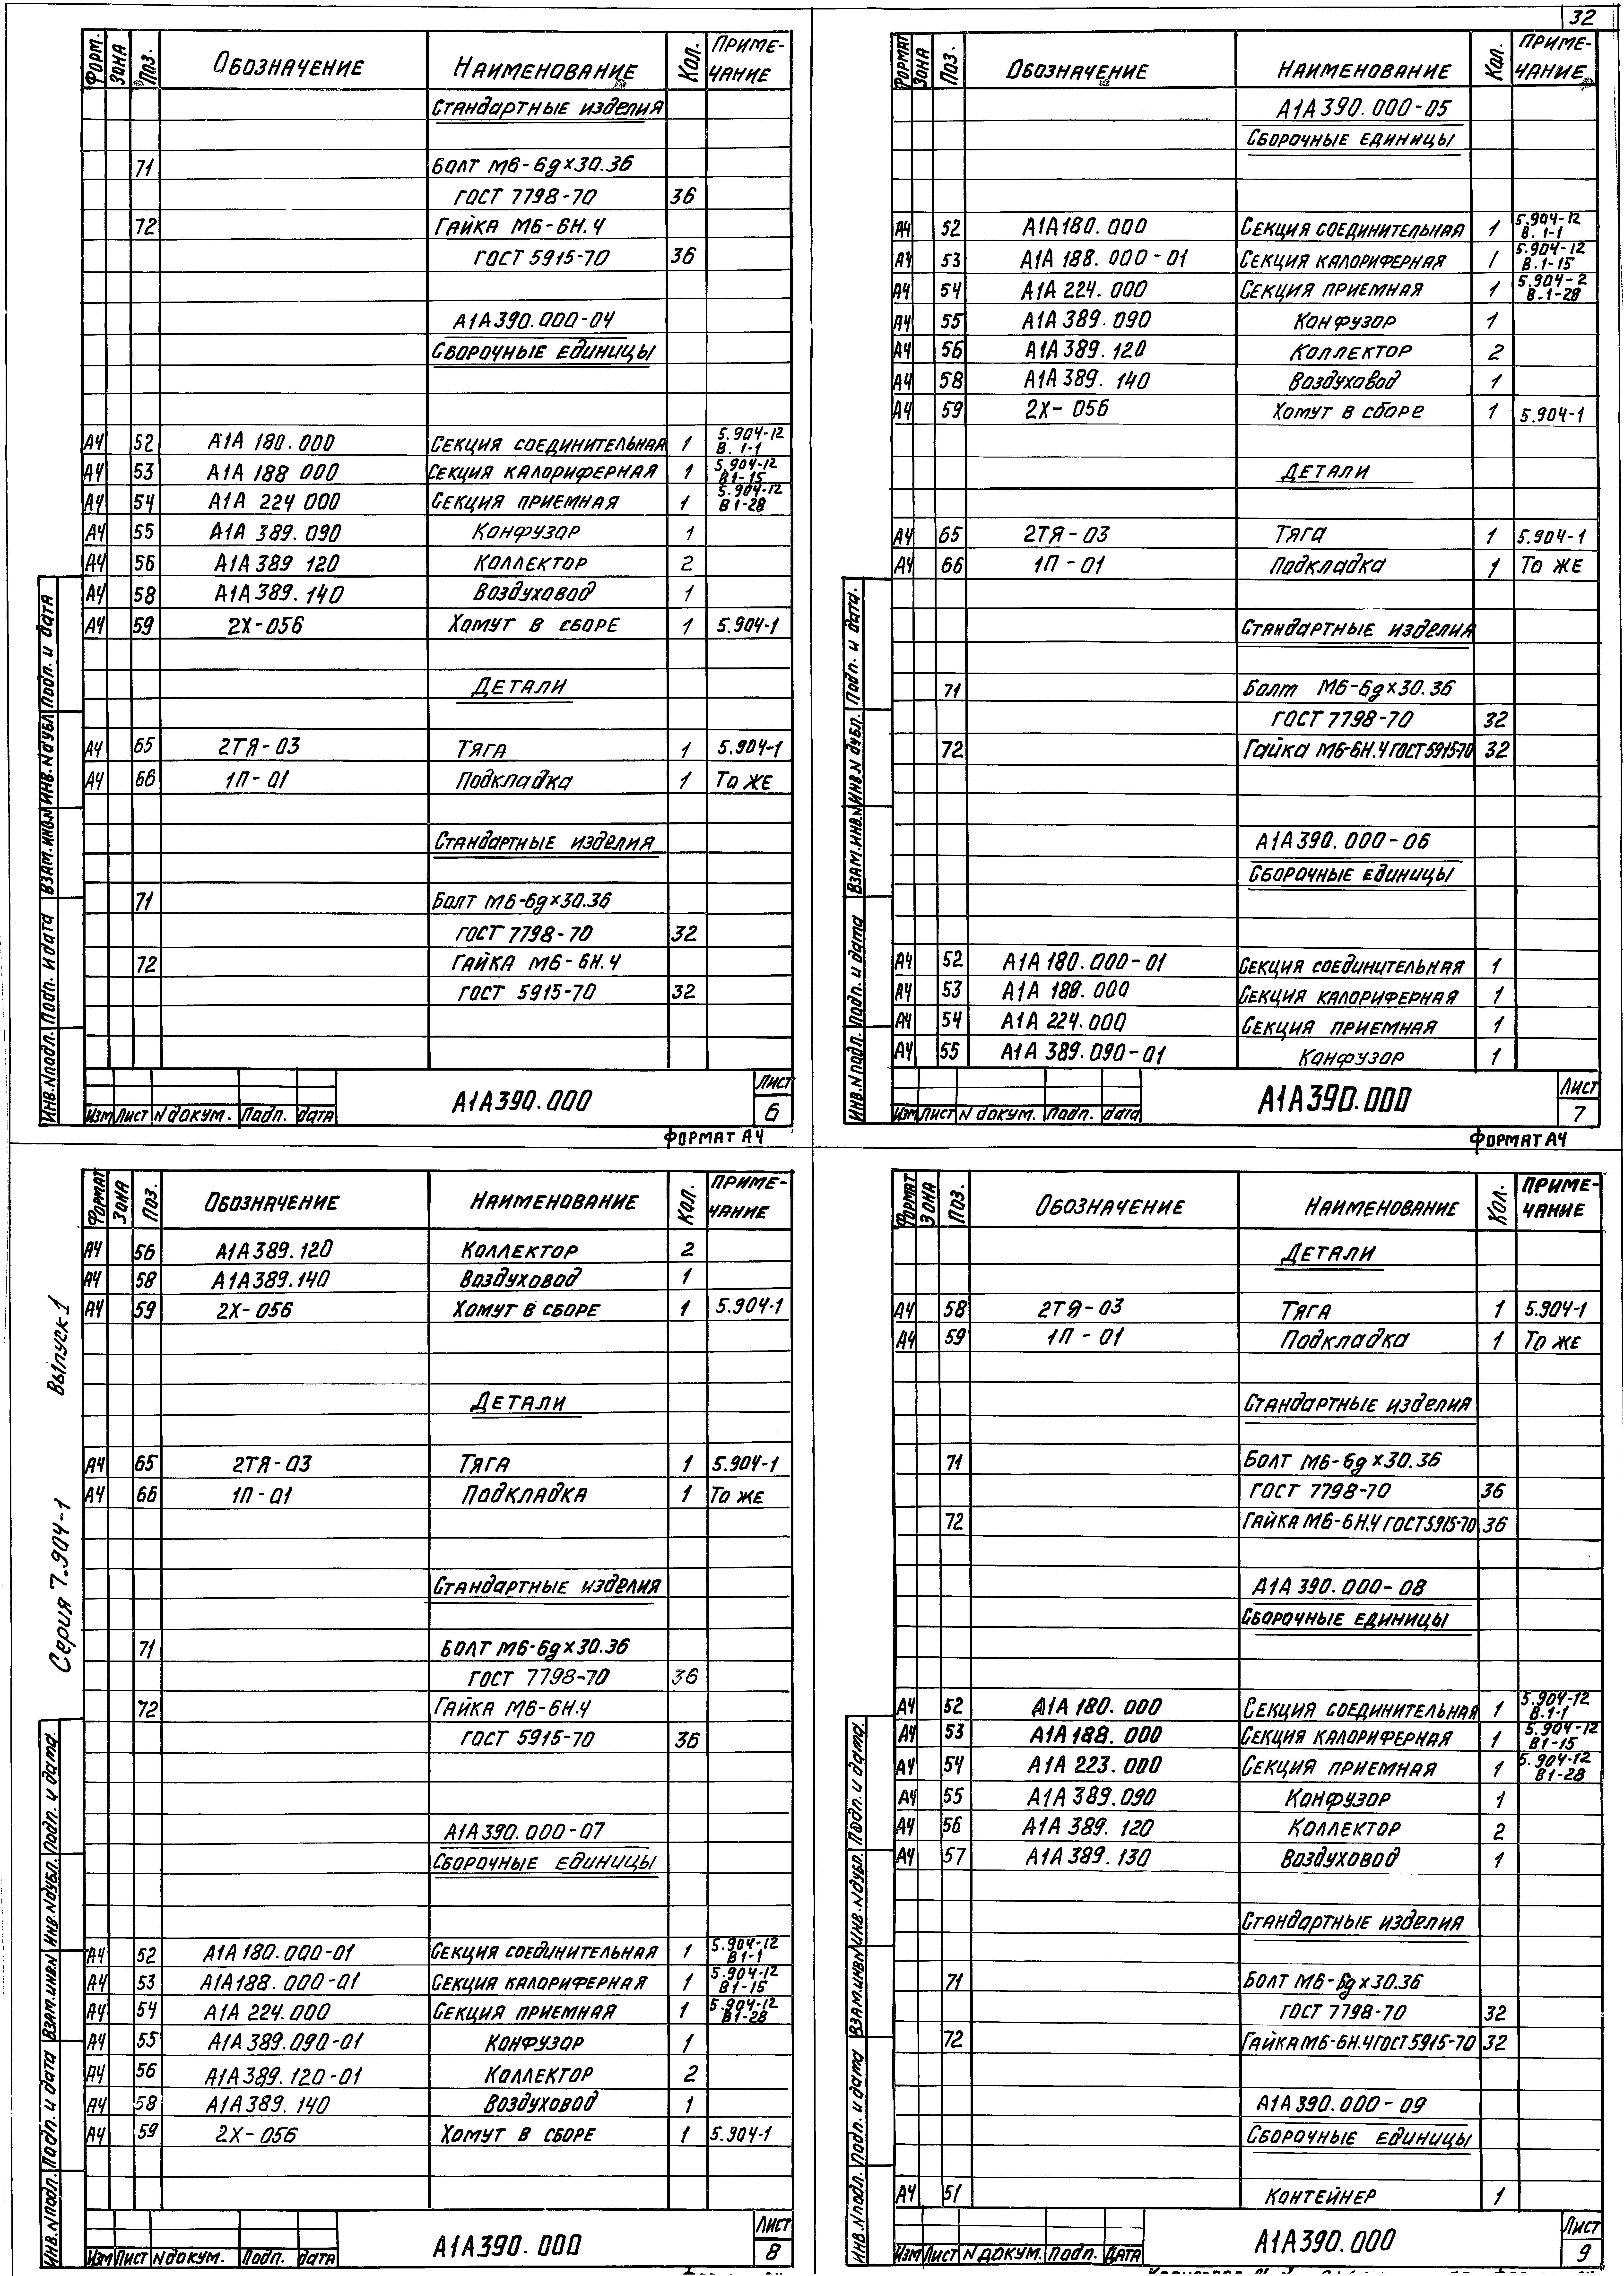 32
ФОРМ. ЗОНА ПОЗ. ОБОЗНАЧЕНИЕ НАИМЕНОВАНИЕ КОЛ. ПРИМЕ-
ЧАНИЕ
Стандартные изделия
71 Болт М6-6g×30.36
ГОСТ 7798-70 36
72 Гайка М6-6Н.4
ГОСТ 5915-70 36
А1А390.000-04
Сборочные единицы
А4 52 А1А 180.000 Секция соединительная 1 5.904-12
В. 1-1
А4 53 А1А 188 000 Секция калориферная 1 5.904-12
В1-15
А4 54 А1А 224 000 Секция приемная 1 5.904-12
В1-28
А4 55 А1А 389.090 Конфузор 1
А4 56 А1А 389 120 Коллектор 2
А4 58 А1А 389.140 Воздуховод 1
А4 59 2Х-056 Хомут в сборе 1 5.904-1
Детали
А4 65 2ТЯ-03 Тяга 1 5.904-1
А4 66 1П-01 Подкладка 1 То же
Стандартные изделия
71 Болт М6-6g×30.36
ГОСТ 7798-70 32
72 Гайка М6-6Н.4
ГОСТ 5915-70 32
ИНВ.N подл. Подп. и дата ВЗАМ.ИНВ.N ИНВ.N дубл. Подп. и дата
Изм Лист N докум. Подп. дата А1А390.000 Лист
6
ФОРМАТ А4
ФОРМАТ ЗОНА ПОЗ. ОБОЗНАЧЕНИЕ НАИМЕНОВАНИЕ КОЛ. ПРИМЕ-
ЧАНИЕ
А1А390.000-05
Сборочные единицы
А4 52 А1А180.000 Секция соединительная 1 5.904-12
В. 1-1
А4 53 А1А 188.000-01 Секция калориферная 1 5.904-12
В.1-15
А4 54 А1А 224.000 Секция приемная 1 5.904-2
В.1-28
А4 55 А1А 389.090 Конфузор 1
А4 56 А1А 389.120 Коллектор 2
А4 58 А1А 389.140 Воздуховод 1
А4 59 2Х-056 Хомут в сборе 1 5.904-1
Детали
А4 65 2ТЯ-03 Тяга 1 5.904-1
А4 66 1П-01 Подкладка 1 То же
Стандартные изделия
71 Болт М6-6g×30.36
ГОСТ 7798-70 32
72 Гайка М6-6Н.4 ГОСТ 5915-70 32
А1А390.000-06
Сборочные единицы
А4 52 А1А 180.000-01 Секция соединительная 1
А4 53 А1А 188.000 Секция калориферная 1
А4 54 А1А 224.000 Секция приемная 1
А4 55 А1А 389.090-01 Конфузор 1
ИНВ.N подл. Подп. и дата ВЗАМ.ИНВ.N ИНВ.N дубл. Подп. и дата.
Изм Лист N докум. Подп. дата А1А390.000 Лист
7
ФОРМАТ А4
Серия 7.904-1 Выпуск 1
ФОРМАТ ЗОНА ПОЗ. ОБОЗНАЧЕНИЕ НАИМЕНОВАНИЕ КОЛ. ПРИМЕ-
ЧАНИЕ
А4 56 А1А 389.120 Коллектор 2
А4 58 А1А389.140 Воздуховод 1
А4 59 2Х-056 Хомут в сборе 1 5.904-1
Детали
А4 65 2ТЯ-03 Тяга 1 5.904-1
А4 66 1П-01 Подкладка 1 То же
Стандартные изделия
71 Болт М6-6g×30.36
ГОСТ 7798-70 36
72 Гайка М6-6Н.4
ГОСТ 5915-70 36
А1А390.000-07
Сборочные единицы
А4 52 А1А 180.000-01 Секция соединительная 1 5.904-12
В1-1
А4 53 А1А188.000-01 Секция калориферная 1 5.904-12
В1-15
А4 54 А1А 224.000 Секция приемная 1 5.904-12
В1-28
А4 55 А1А 389.090-01 Конфузор 1
А4 56 А1А389.120-01 Коллектор 2
А4 58 А1А389.140 Воздуховод 1
А4 59 2Х-056 Хомут в сборе 1 5.904-1
ИНВ.N подл. Подп. и дата ВЗАМ.ИНВ.N ИНВ.N дубл. Подп. и дата.
Изм Лист N докум. Подп. дата А1А390.000 Лист
8
ФОРМАТ ЗОНА ПОЗ. ОБОЗНАЧЕНИЕ НАИМЕНОВАНИЕ КОЛ. ПРИМЕ-
ЧАНИЕ
Детали
А4 58 2ТЯ-03 Тяга 1 5.904-1
А4 59 1П-01 Подкладка 1 То же
Стандартные изделия
71 Болт М6-6g×30.36
ГОСТ 7798-70 36
72 Гайка М6-6Н.4 ГОСТ5915-70 36
А1А 390.000-08
Сборочные единицы
А4 52 А1А 180.000 Секция соединительная 1 5.904-12
В.1-1
А4 53 А1А188.000 Секция калориферная 1 5.904-12
В1-15
А4 54 А1А 223.000 Секция приемная 1 5.904-12
В1-28
А4 55 А1А 389.090 Конфузор 1
А4 56 А1А 389.120 Коллектор 2
А4 57 А1А 389.130 Воздуховод 1
Стандартные изделия
71 Болт М6-6g×30.36
ГОСТ 7798-70 32
72 Гайка М6-6Н.4 ГОСТ 5915-70 32
А1А 390.000-09
Сборочные единицы
А4 51 Контейнер 1
ИНВ.N подл. Подп. и дата ВЗАМ.ИНВ.N ИНВ.N дубл. Подп. и дата.
Изм Лист N докум. Подп. Дата А1А390.000 Лист
9